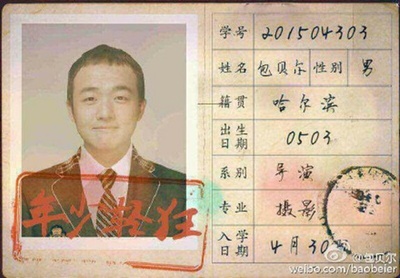 学号 201504303
姓名 包贝尔 性别 男
籍贯 哈尔滨
出生日期 0503
系别 导演
专业 摄影
入学日期 4月30
年少轻狂
@包贝尔
weibo.com/baobeier